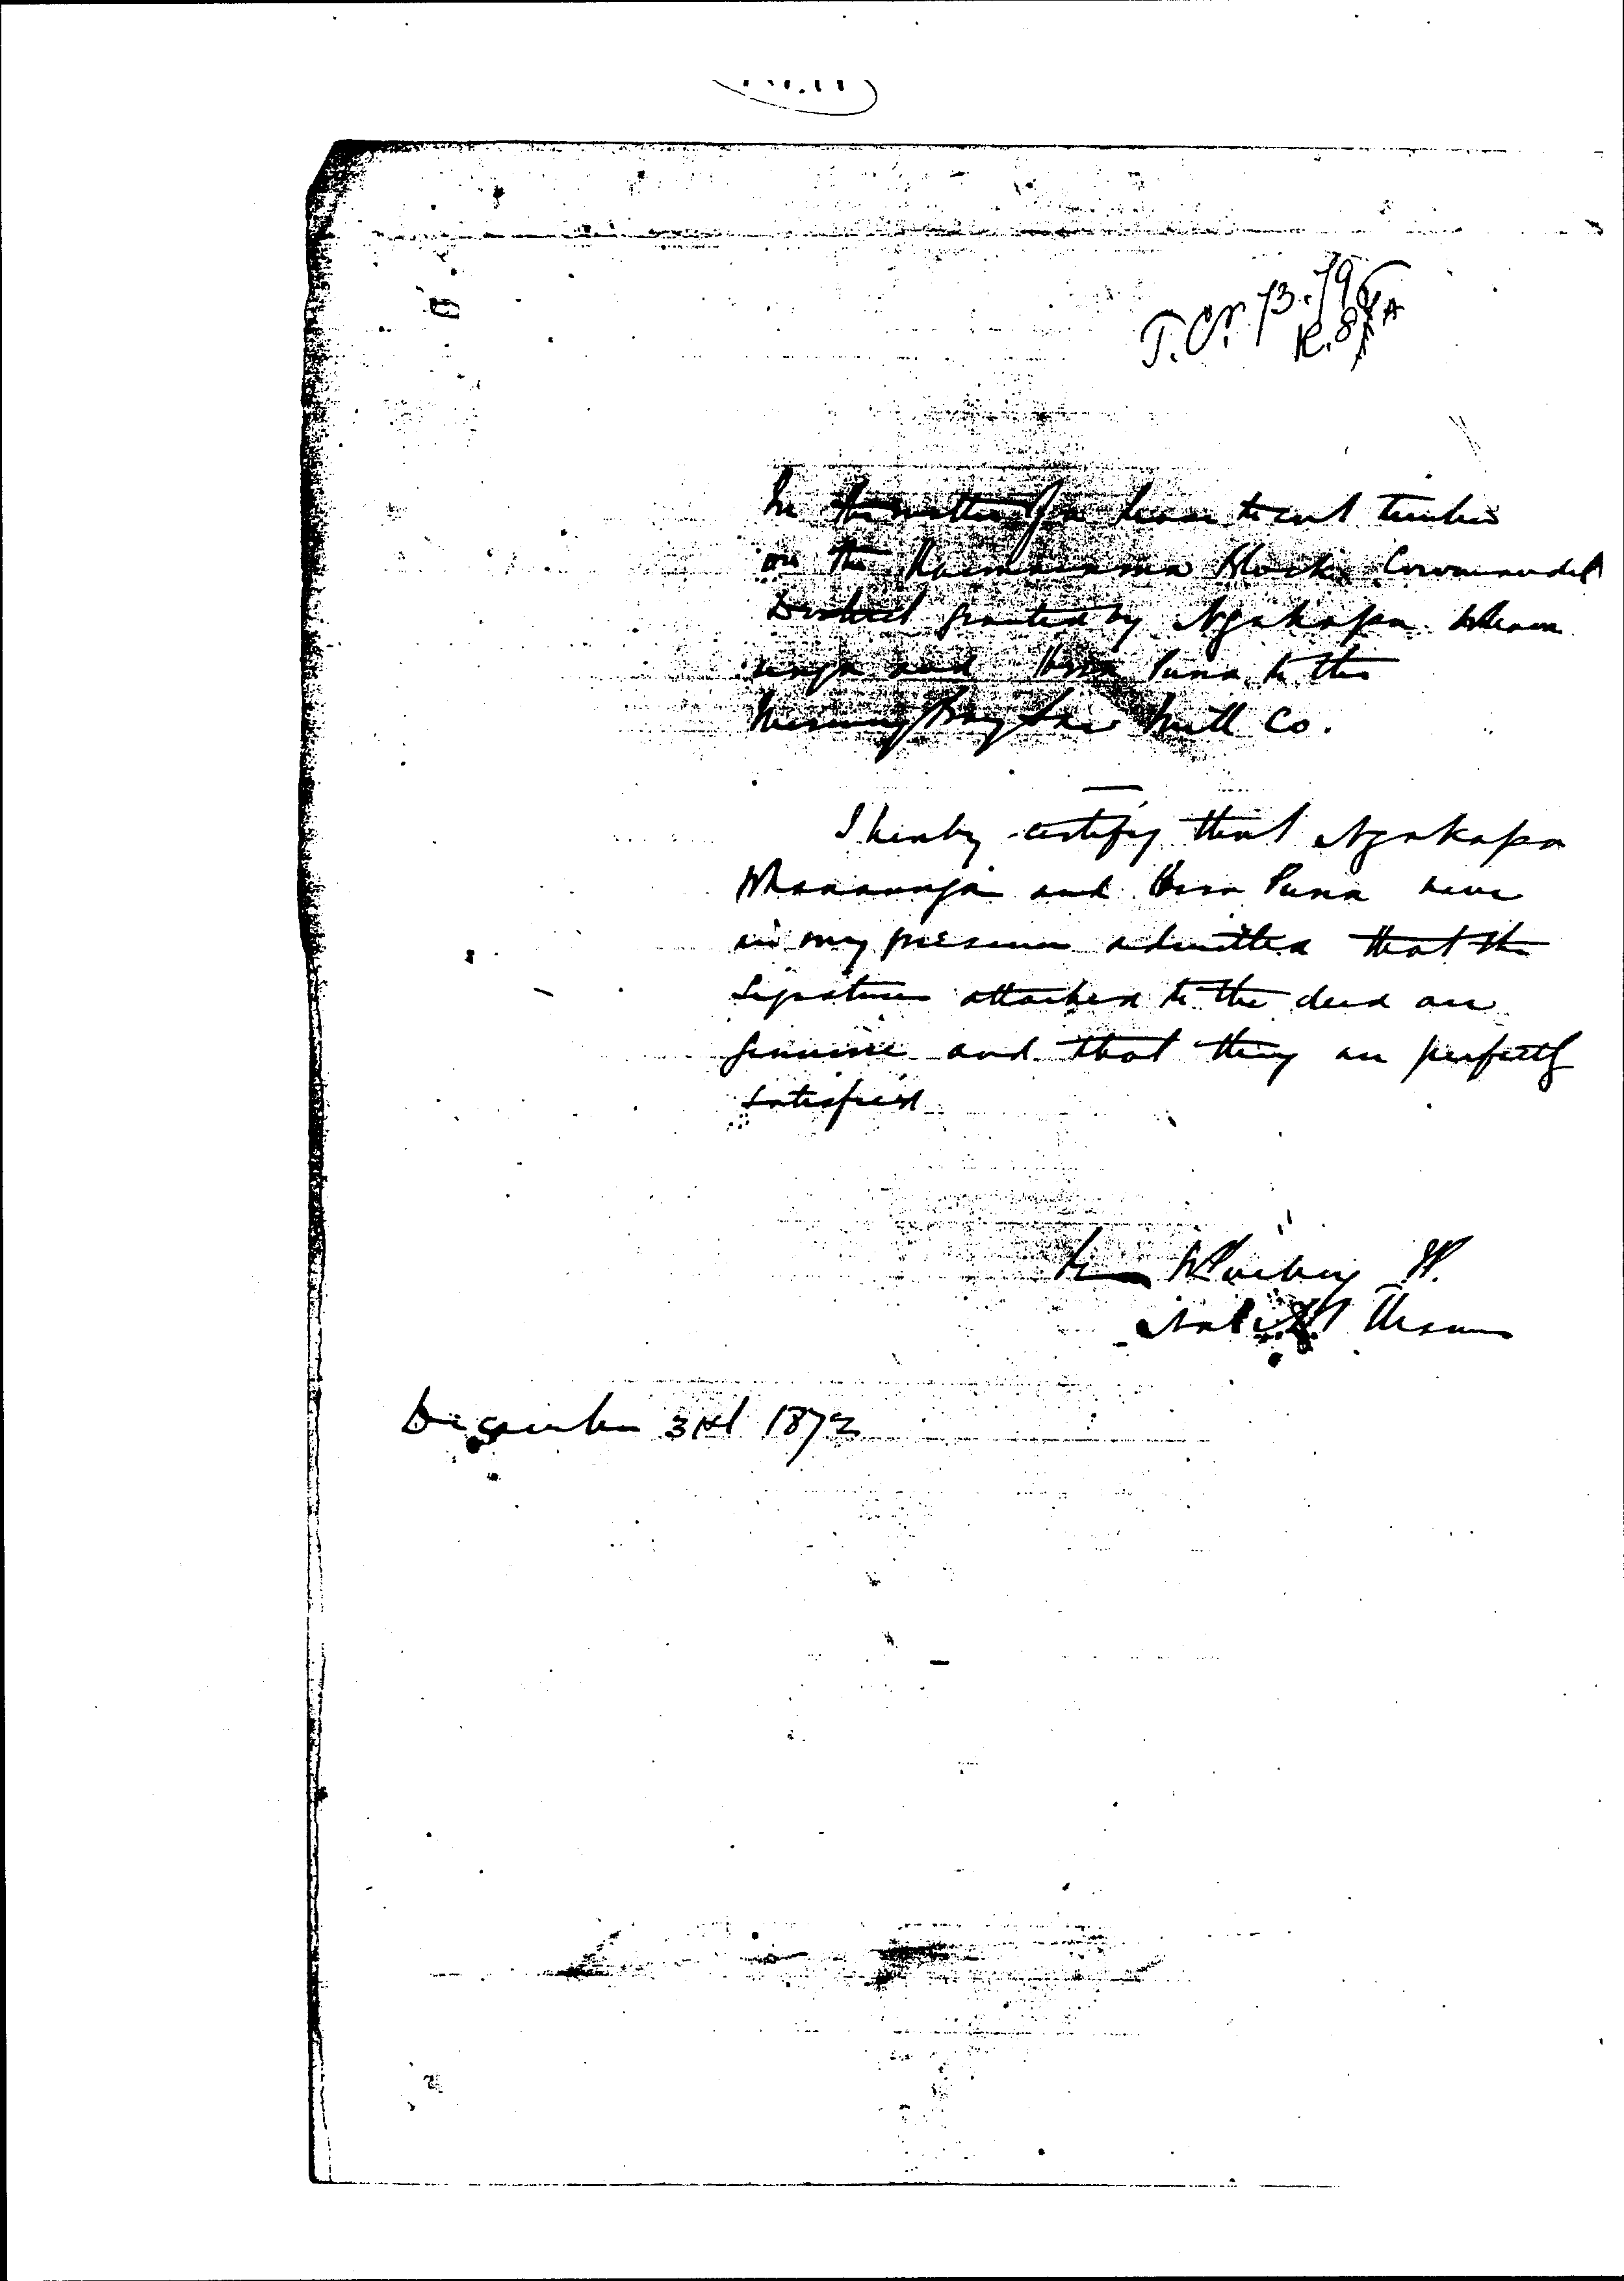 T.Cr. 73.79
K.8
In the matter of a lease to cut timber
on the Block Coromandel
District granted by Ngakapa Whana
unga and Hera Puna to the
Mercury Bay Saw Mill Co.
I hereby certify that Ngakapa
Whanaunga and Hera Puna have
in my presence admitted that the
signatures attached to the deed are
genuine and that they are perfectly
satisfied
Thames
December 3rd 1872